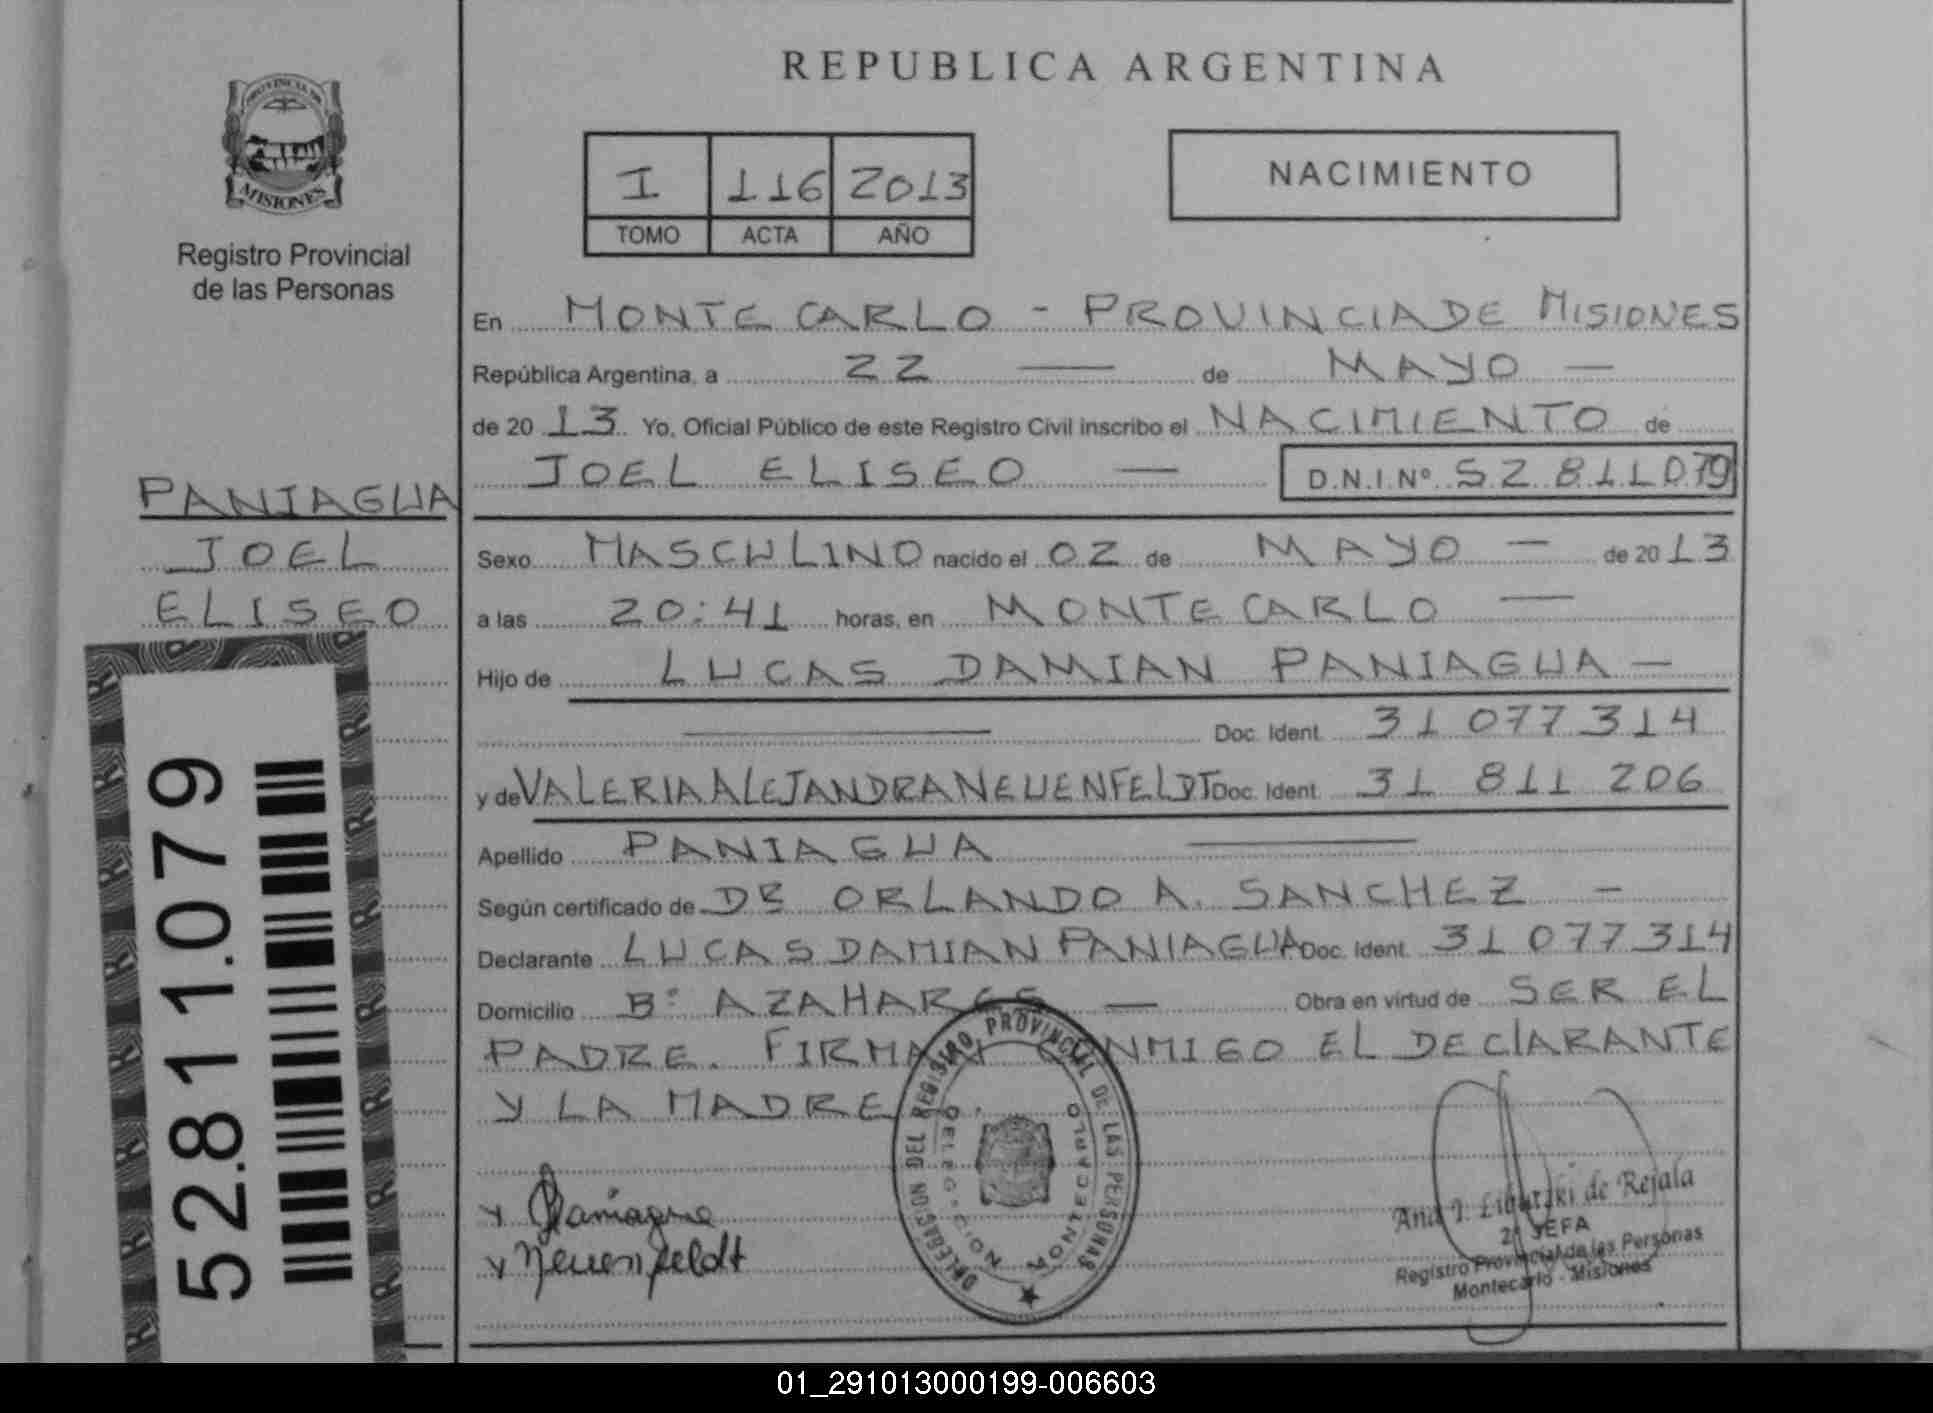 REPUBLICA ARGENTINA
PROVINCIA DE
MISIONES
Registro Provincial
de las Personas
I 116 2013
TOMO ACTA AÑO
NACIMIENTO
En MONTECARLO - PROVINCIA DE MISIONES
República Argentina, a 22 — de MAYO —
de 20 13 Yo, Oficial Público de este Registro Civil inscribo el NACIMIENTO de
JOEL ELISEO — D.N.I.Nº 52 811 079
PANIAGUA
JOEL
ELISEO
Sexo MASCULINO nacido el 02 de MAYO — de 20 13
a las 20:41 horas, en MONTECARLO —
Hijo de LUCAS DAMIAN PANIAGUA —
— Doc. Ident. 31 077 314
y de VALERIA ALEJANDRA NEUENFELDT Doc. Ident. 31 811 206
Apellido PANIAGUA —
Según certificado de DE ORLANDO A. SANCHEZ —
Declarante LUCAS DAMIAN PANIAGUA Doc. Ident. 31 077 314
Domicilio Bº AZAHARES — Obra en virtud de SER EL
PADRE. FIRMAN CONMIGO EL DECLARANTE
Y LA MADRE.
52.811.079
R R R R R R R R
x Paniagua
x Neuenfeldt
DELEGACION DEL REGISTRO PROVINCIAL DE LAS PERSONAS
DELEGACION MONTECARLO
Ana I. de Rejala
2º JEFA
Registro Provincial de las Personas
Montecarlo - Misiones
01_291013000199-006603